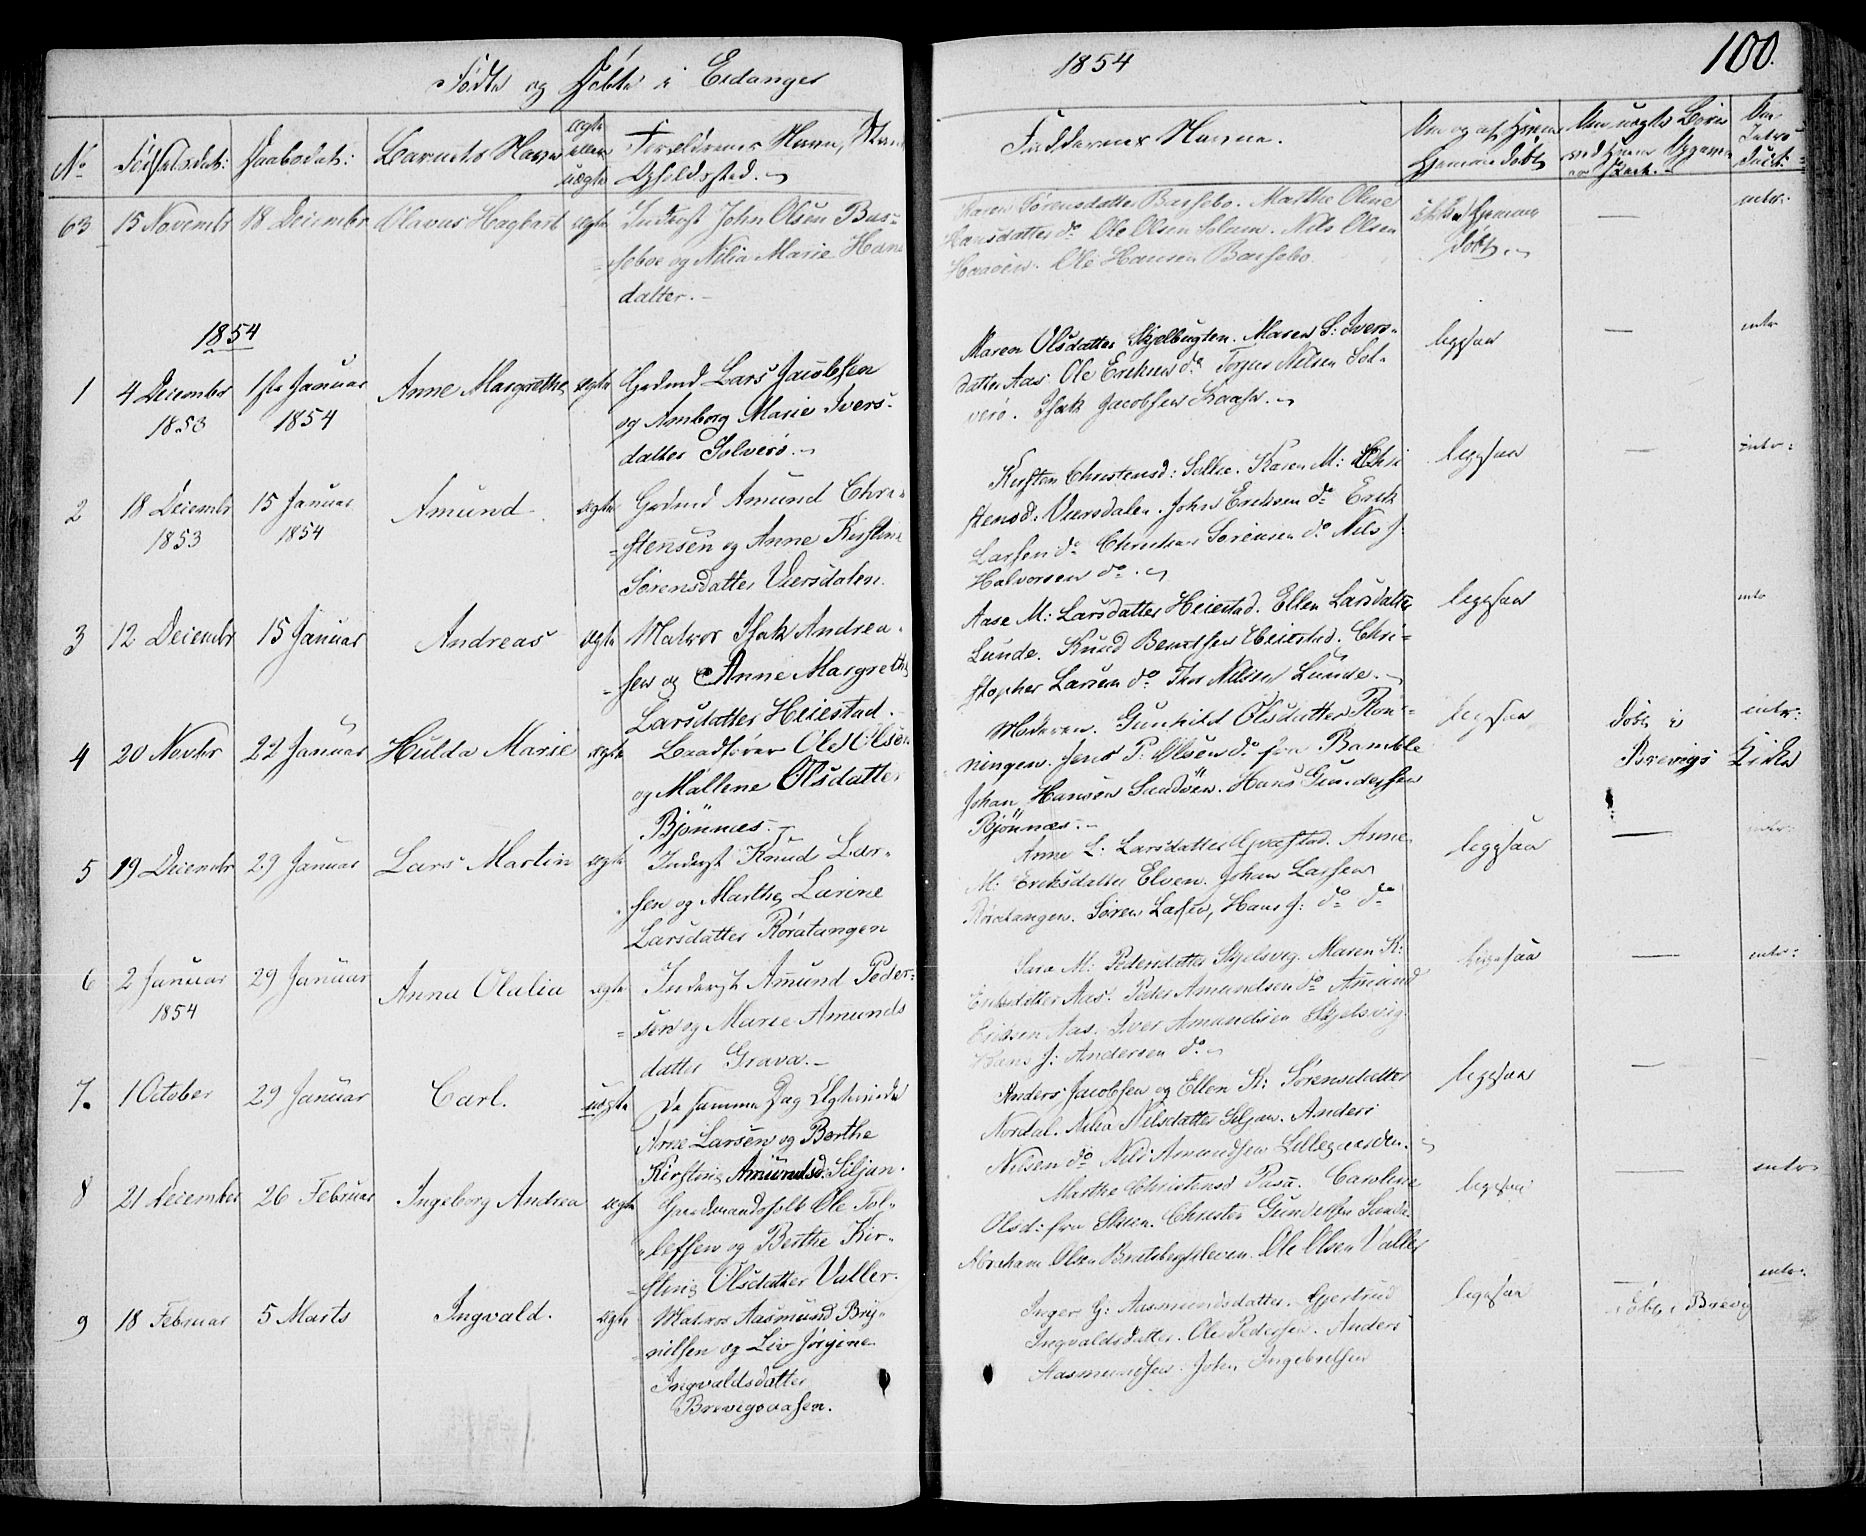 Födte og Døbte i Eidanger
1854
100.
No
Fødselsdat:
Daabsdat:
Barnets Navn
ægte eller uægte
Forældrenes Navn, Stand
Opholdssted.
Faddernes Navne.
Om og af Hvem
Hjemmedøbt
63
15 Novembr
18 Decembr
Olavus Hagbart
ægte
Inderst John Olsen Bas-
seboe og Nilia Marie Hans
datter.
Karen Sørensdatter Bassebo. Marthe Oline
Hansdatter do Ole Olsen Solum. Nils Olsen
Ole Hansen Bassebo.
ikke Hjemme
døbt
—
intr.
1854
1
4 Decembr
1853
1ste Januar
1854
Anne Margrethe
ægte
Grdmd Lars Jacobsen
og Amborg Marie Ivers-
datter Solverø.
Maren Olsdatter Skjelbugten. Maren S: Ivers-
datter Aas. Ole Eriksen do Torger Nilsen Sol-
verø. Isak Jacobsen
ligesaa
—
intr
2
18 Decembr
1853
15 Januar
1854
Amund
ægte
Grdmd Amund Chri-
stensen og Anne Kirstine
Sørensdatter Versdalen.
Kirsten Christensd: Sollie. Karen M: Chri
stensd. Versdalen. John Eriksen do Erik
Larsen do Christen Sørensen do Nils J.
Halvorsen do
ligesaa
—
intr:
3
12 Decembr
15 Januar
Andreas
ægte
Matros Isak Andrea-
sen og Anne Margrethe
Larsdatter Heiestad.
Aase M: Larsdatter Heiestad. Ellen Larsdatter
Lunde. Knud Berntsen Heiestad. Chri-
stopher Larsen do Thor Nilsen Lunde.
ligesaa
intr
4
20 Novbr
22 Januar
Hulda Marie
ægte
Baadfører Ole Olsen
og Mallene Olsdatter
Bjønnes.
Moderen. Gunhild Olsdatter Røn-
ningen. Jens P: Olsen do fra Bamble
Johan Hansen Sandøen. Hans Gundersen
Bjønnes.
ligesaa
døbt i
Brevigs Kirke
intr:
5
19 Decembr
29 Januar
Lars Martin
ægte
Inderst Knud Lar-
sen og Marthe Larine
Larsdatter Røratangen
Anne L: Larsdatter Anne
M: Eriksdatter Elven. Johan Larsen
Røratangen. Søren Larsen, Hans J: do do
ligesaa
—
intr:
6
2 Januar
1854
29 Januar
Anna Olalia
ægte
Inderst Amund Peder-
sen og Marie Amunds
datter Grava.
Sara M: Pedersdatter Skjelsvig. Maren K:
Eriksdatter Aas. Peder Amundsen do Amund
Eriksen Aas. Iver Amundsen Skjelsvig.
Hans J: Andersen do
ligesaa
—
intr:
7.
1 October
29 Januar
Carl.
uægte
De samme Dag Ægteviede
Arne Larsen og Berthe
Kirstine Amundsd. Siljan.
Anders Jacobsen og Ellen K: Sørensdatter
Nordal. Nilia Nilsdatter Siljan. Anders
Nilsen do Nils Amundsen Lillegaarden.
ligesaa
—
8
21 December
26 Februar
Ingeborg Andrea
ægte
Gaardmandsfolk Ole Tol-
lefsen og Berthe Kir-
stine Olsdatter Valler.
Marthe Christensd Pasa. Caroline
Olsd: fra Skien. Christen Gundersen
Abraham Olsen Bratsbergkleven. Ole Olsen Valler
ligesaa
—
intr.
9
18 Februar
5 Marts
Ingvald.
ægte
Matros Aasmund Bry-
nilsen og Liv Jørgine
Ingvaldsdatter
Brevigsaasen.
Inger G: Aasmundsdatter. Gjertrud
Ingvaldsdatter. Ole Pedersen. Anders
Aasmundsen. John Ingebretsen
ligesaa
—
døbt i Brevig
intr.